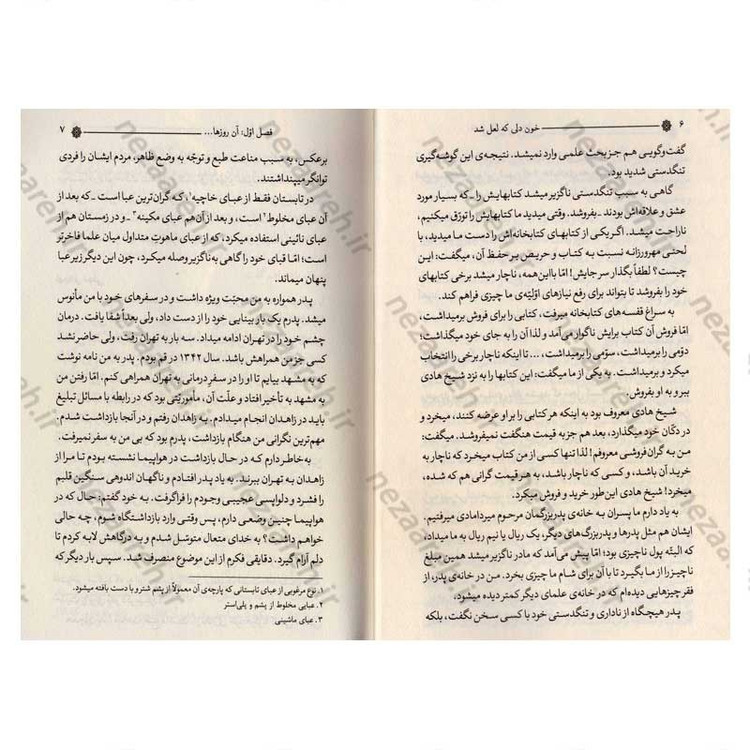 ۶ خون دلی که لعل شد
گفت‌وگویی هم جز بحث علمی وارد نمیشد. نتیجه‌ی این گوشه‌گیری
تنگدستی شدید بود.
گاهی به سبب تنگدستی ناگزیر میشد کتابهایش را ـ که بسیار مورد
عشق و علاقه‌اش بودند ـ بفروشد. وقتی میدید ما کتابهایش را توزق میکنیم،
ناراحت میشد. اگر یکی از کتابهای کتابخانه‌اش را دست ما میدید، با
لحنی مهرورزانه نسبت به کتاب و حریص بر حفظ آن، میگفت: این
چیست؟ لطفاً بگذار سر جایش! امّا با این‌همه، ناچار میشد برخی کتابهای
خود را بفروشد تا بتواند برای رفع نیازهای اوّلیّه‌ی ما چیزی فراهم کند.
به سراغ قفسه‌های کتابخانه میرفت، کتابی را برای فروش برمیداشت،
امّا فروش آن کتاب برایش ناگوار می‌آمد و لذا آن را به جای خود میگذاشت؛
دوّمی را برمیداشت، سوّمی را برمیداشت، ... تا اینکه ناچار برخی را انتخاب
میکرد و برمیداشت. به یکی از ما میگفت: این کتابها را نزد شیخ هادی
ببر و به او بفروش.
شیخ هادی معروف بود به اینکه هر کتابی را بر او عرضه کنند، میخرد و
در دکّان خود میگذارد، بعد هم جز به قیمت هنگفت نمیفروشد. میگفت:
من به گران‌فروشی معروفم! لذا تنها کسی از من کتاب میخرد که ناچار به
خرید آن باشد، و کسی که ناچار باشد، به هر قیمت گرانی هم که شده،
میخرد! شیخ هادی این‌طور خرید و فروش میکرد.
به یاد دارم ما پسران به خانه‌ی پدربزرگمان مرحوم میردامادی میرفتیم.
ایشان هم مثل پدرها و پدربزرگ‌های دیگر، یک ریال یا نیم ریال به ما میداد،
که البتّه پول ناچیزی بود؛ امّا پیش می‌آمد که مادر ناگزیر میشد همین مبلغ
ناچیز را از ما بگیرد تا با آن برای شام ما چیزی بخرد. من در خانه‌ی پدر، از
فقر چیزهایی دیده‌ام که در خانه‌ی علمای دیگر کمتر دیده میشود.
پدر هیچگاه از ناداری و تنگدستی خود با کسی سخن نگفت، بلکه
فصل اوّل: آن روزها... ۷
برعکس، به سبب مناعت طبع و توجّه به وضع ظاهر، مردم ایشان را فردی
توانگر میپنداشتند.
در تابستان فقط از عبای خاچیه۱، که گران‌ترین عبا است ـ که بعد از
آن عبای مخلوط۲ است، و بعد از آن هم عبای مکینه۳ ـ و در زمستان هم از
عبای نائینی استفاده میکرد، که از عبای ماهوتِ متداول میان علما فاخرتر
است؛ امّا قبای خود را گاهی به‌ناگزیر وصله میکرد، چون این دیگر زیر عبا
پنهان میماند.
پدر همواره به من محبّت ویژه داشت و در سفرهای خود با من مأنوس
میشد. پدرم یک بار بینایی خود را از دست داد، ولی بعداً شفا یافت. درمان
چشم خود را در تهران ادامه میداد. سه بار به تهران رفت، ولی حاضر نشد
کسی جز من همراهش باشد. سال ۱۳۴۲ در قم بودم. پدر به من نامه نوشت
که به مشهد بیایم تا او را در سفرِ درمانی به تهران همراهی کنم. امّا رفتن من
به مشهد به تأخیر افتاد و علّت آن، مأموریّتی بود که در رابطه با مسائل تبلیغ
باید در زاهدان انجام میدادم. به زاهدان رفتم و در آنجا بازداشت شدم.
مهم‌ترین نگرانی من هنگام بازداشت، پدرم بود که بی من به سفر نمیرفت.
به خاطر دارم که در حال بازداشت در هواپیما نشسته بودم تا مرا از
زاهدان به تهران ببرند. به یاد پدر افتادم و ناگهان اندوهی سنگین قلبم
را فشرد و دلواپسی عجیبی وجودم را فراگرفت. به خود گفتم: حال که در
هواپیما چنین وضعی دارم، پس وقتی وارد بازداشتگاه شوم، چه حالی
خواهم داشت؟ به خدای متعال متوسّل شدم و به درگاهش لابه کردم تا
دلم آرام گیرد. دقایقی فکرم از این موضوع منصرف شد. سپس بار دیگر که
۱. نوع مرغوبی از عبای تابستانی که پارچه‌ی آن معمولاً از پشم شتر و با دست بافته میشود.
۲. عبایی مخلوط از پشم و پلی‌استر
۳. عبای ماشینی
nezaareh.ir